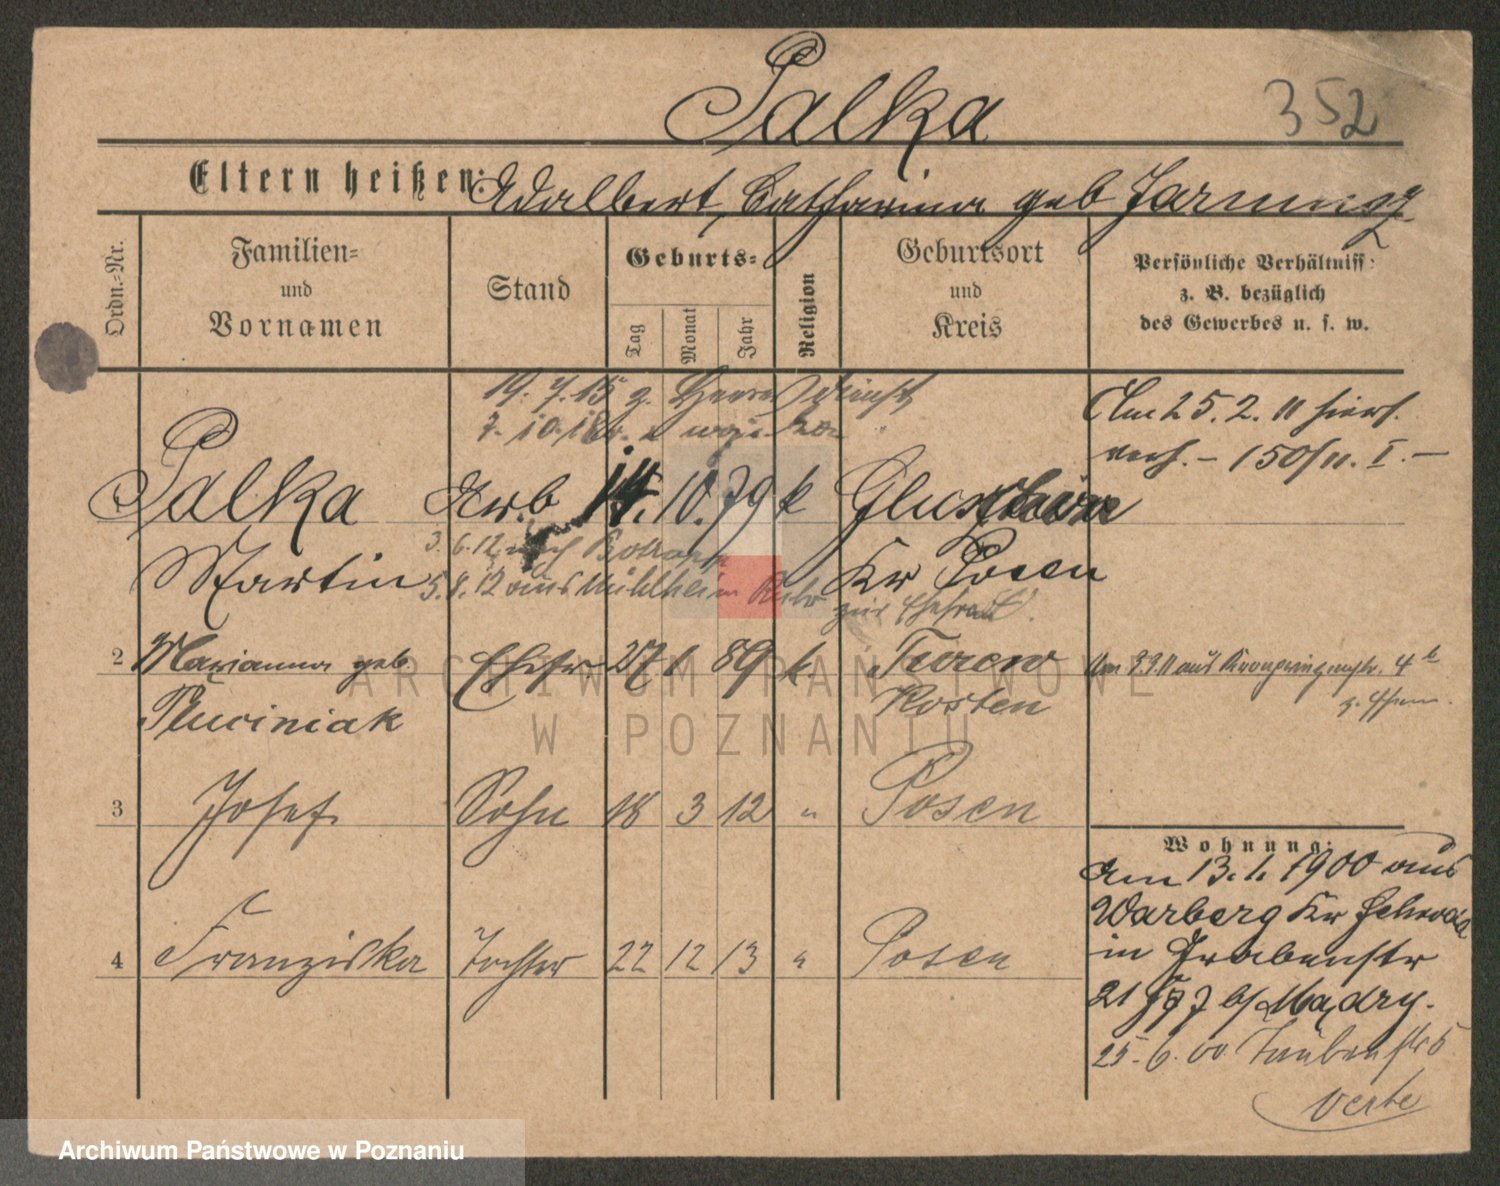 Palka
352
Eltern heißen: Adalbert, Catharina geb
Ordn.-Nr.
Familien-
und
Vornamen
Stand
Geburts-
Tag
Monat
Jahr
Religion
Geburtsort
und
Kreis
Persönliche Verhältniss
z. B. bezüglich
des Gewerbes u. s. w.
19. 7. 15 z.
7. 10. 18
Am 25. 2. 11 hiers.
verh. – 150/11. I. –
Palka Arb 14. 10. 79 k
Martin Kr Posen
3. 6. 12 nach Bottrop
5. 8. 12 aus Mühlheim Ruhr zur Ehefrau.
2 Marianna geb. Ehefr. 27 1 89 k. Turew
Pluciniak Kosten
Am 9.3.11 aus Kronprinzenstr. 4
3 Josef Sohn 18 3 12 " Posen
4 Franziska Tochter 22 12 13 " Posen
Wohnung:
Am 13. 1. 1900 aus
Warberg Kr
in Grabenstr
21 b/ Madry.
25. 6. 00 Taubenstr 5
verte
ARCHIWUM PAŃSTWOWE
W POZNANIU
Archiwum Państwowe w Poznaniu